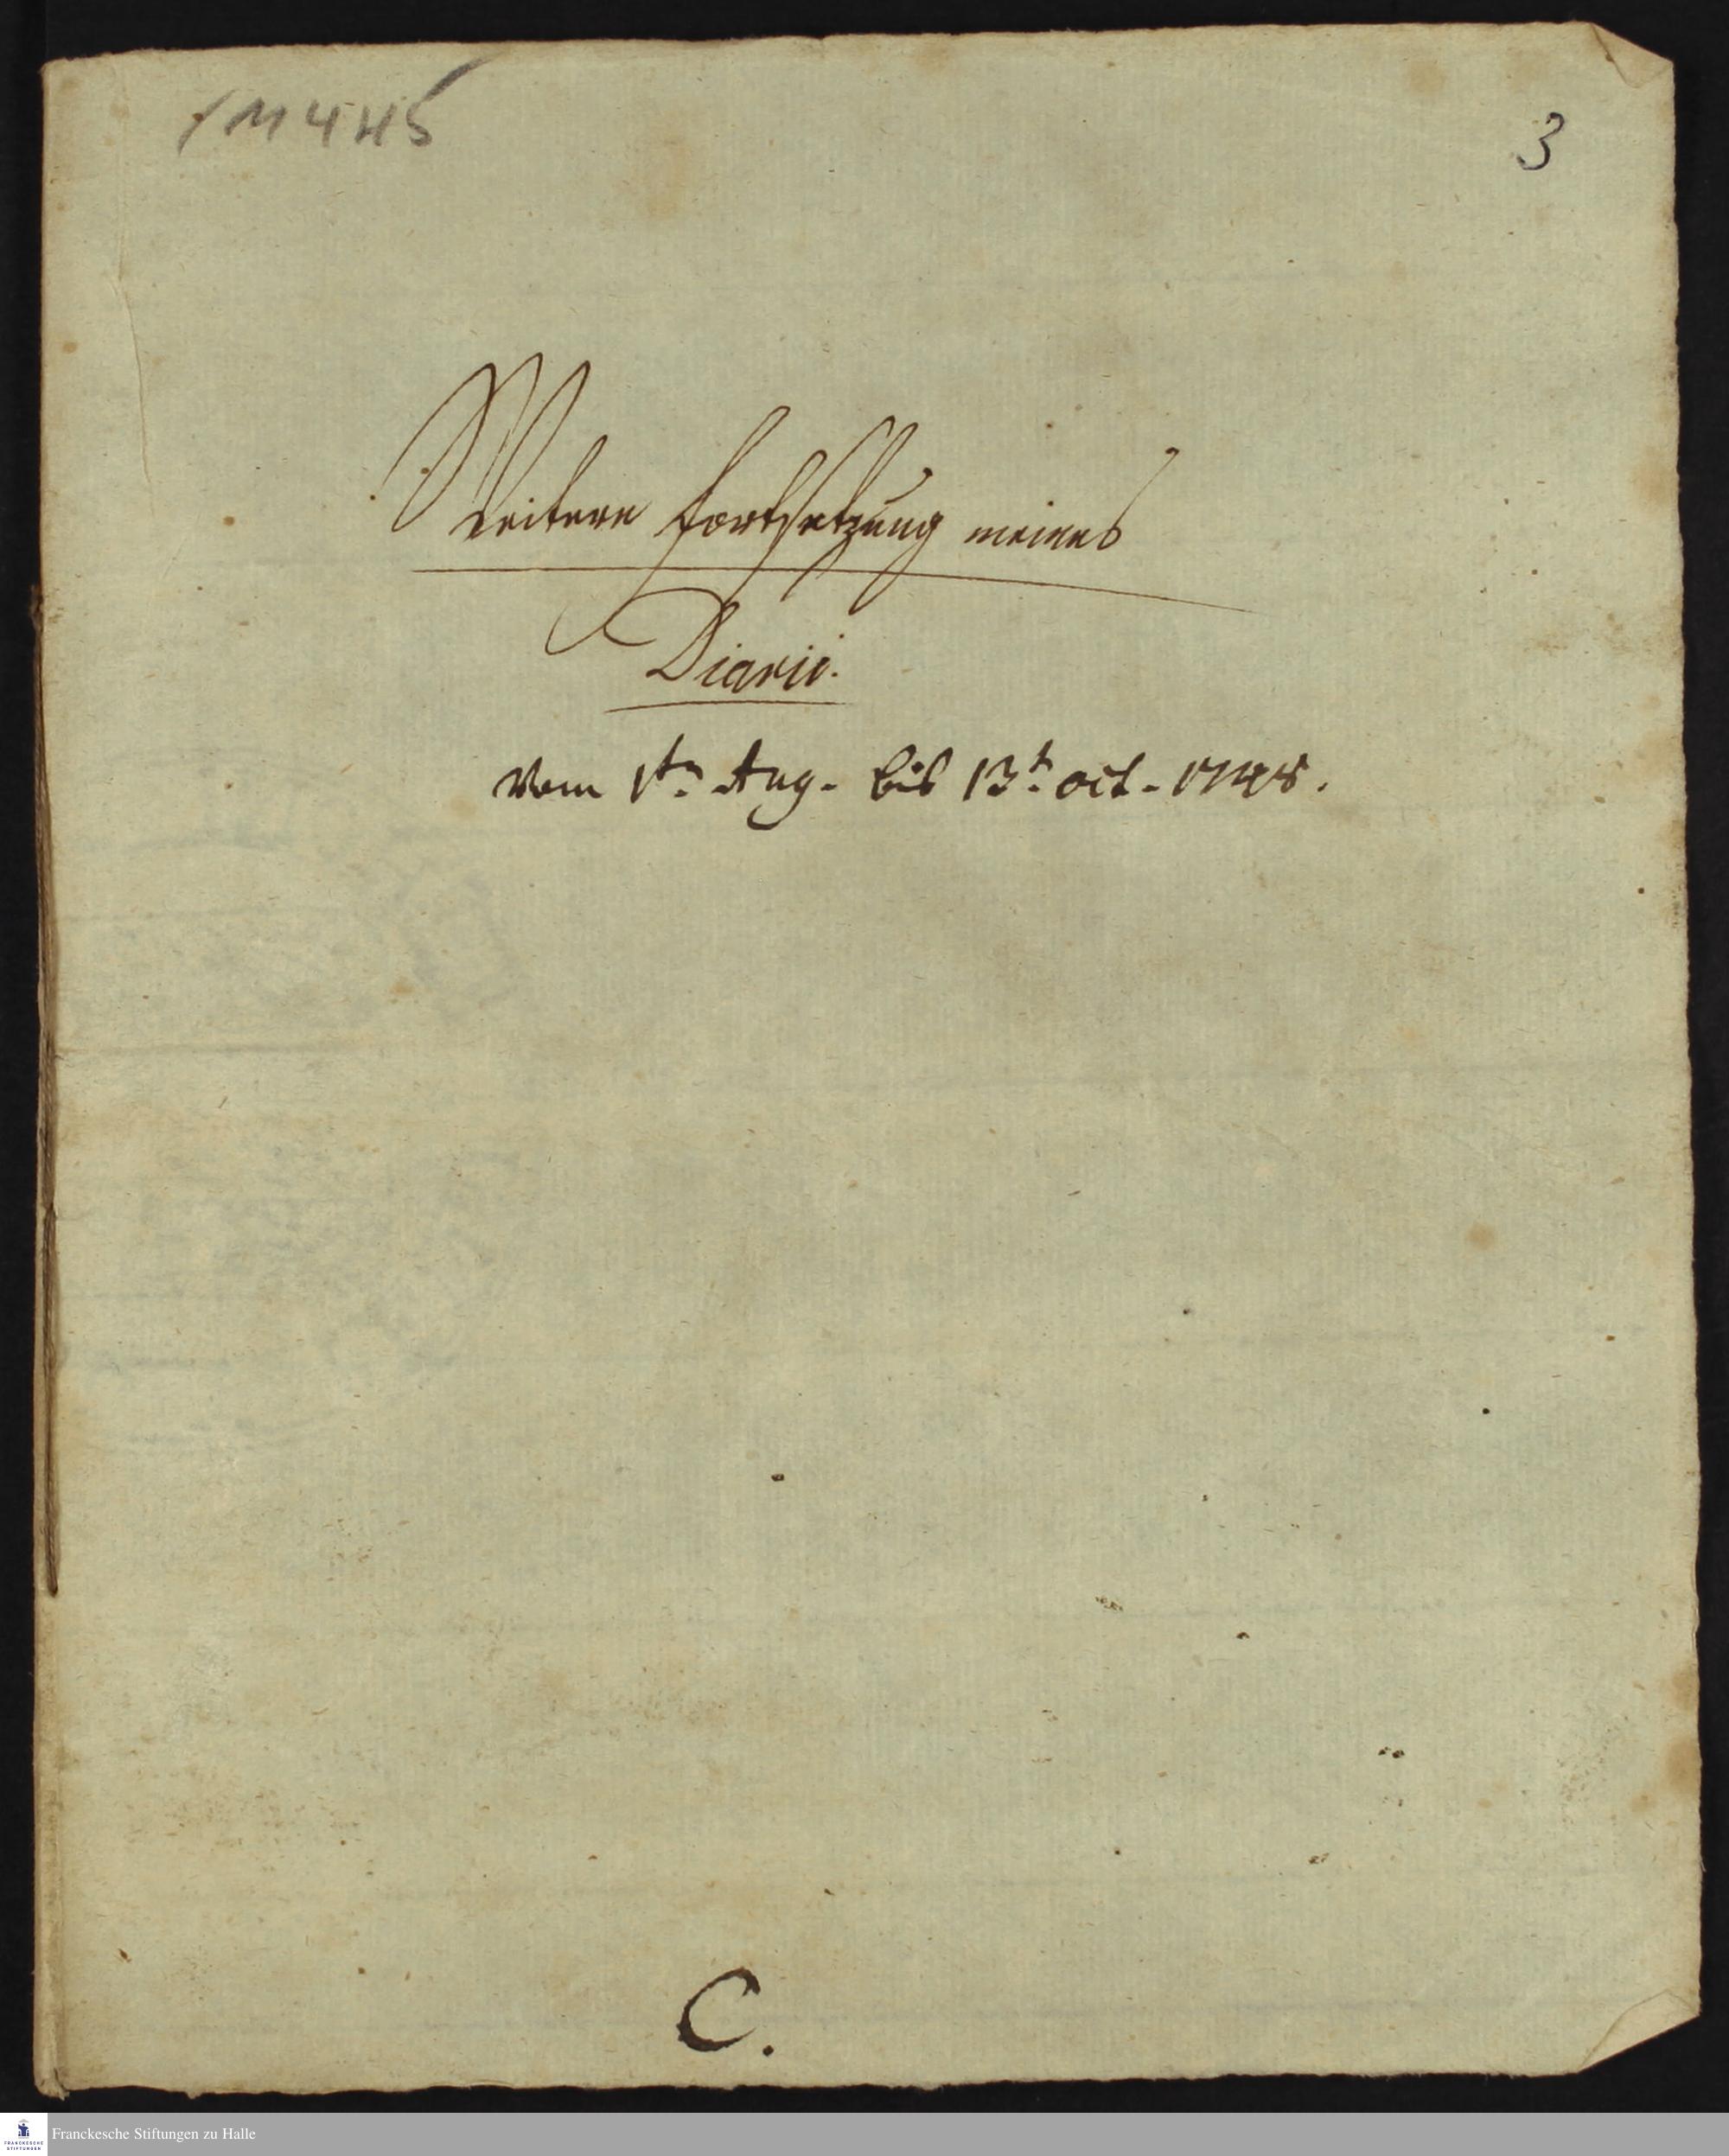 / M 4 H 5
3
Weitere Fortsetzung meines
Diarii.
Vom 1t. Aug. bis 13t. oct. 1748.
C.
Franckesche Stiftungen zu Halle
FRANCKESCHE
STIFTUNGEN